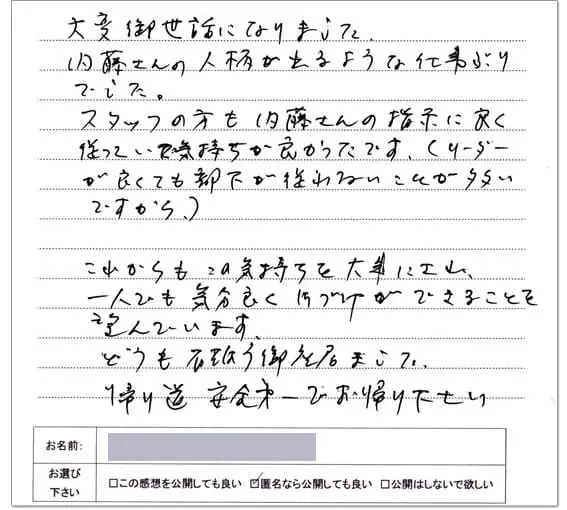 大変御世話になりました。
内藤さんの人柄が出るような仕事ぶり
でした。
スタッフの方も内藤さんの指示に良く
従っていて気持ちが良かったです。(リーダー
が良くても部下が従わないことが多い
ですから。)
これからもこの気持ちを大事に
一人でも気分良く ができることを
望んでいます。
どうも有難う御座居ました。
帰り道 安全第一でお帰り下さい
お名前:
お選び
下さい
□この感想を公開しても良い ☑匿名なら公開しても良い □公開はしないで欲しい